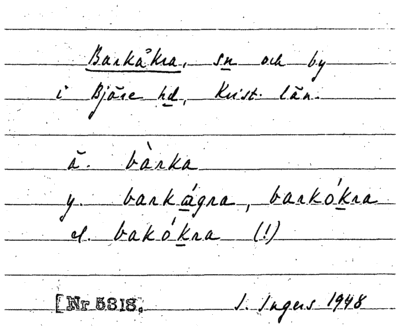 Barkåkra, sn och by
i Bjäre hd, Krist. län.
ä. bàrka
y. barkágra, barkókra
el. bakókra (!)
[Nr 5818. I. Ingers 1948